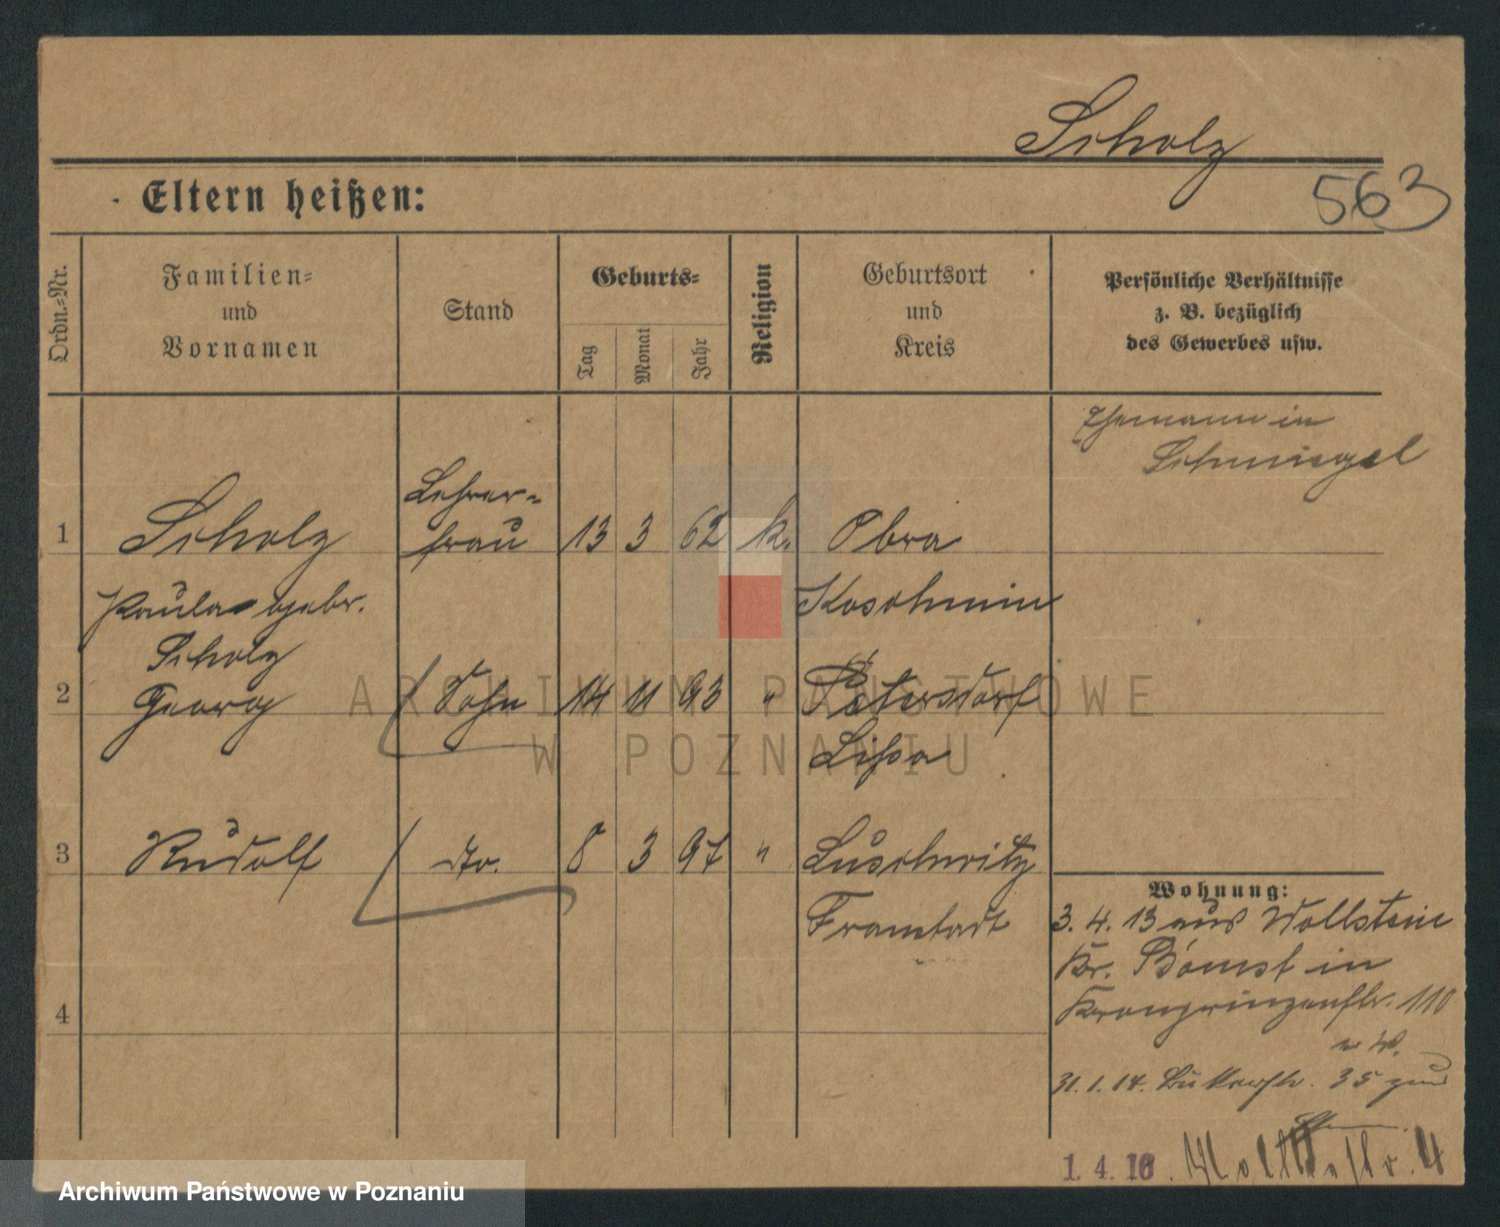 Scholz
563
Eltern heißen:
Ordn.-Nr.
Familien-
und
Vornamen
Stand
Geburts-
Tag
Monat
Jahr
Religion
Geburtsort
und
Kreis
Persönliche Verhältnisse
z. B. bezüglich
des Gewerbes usw.
Ehemann in
Schmiegel
1 Scholz Lehrer-
frau 13 3 62 k. Obra
Paula gebr. Koschmin
Scholz
2 Georg Sohn 14 11 93 " Petersdorf
Lissa
3 Rudolf do. 8 3 97 " Luschwitz
Fraustadt
4
Wohnung:
3. 4. 13 aus Wollstein
Kr. Bomst in
Kronprinzenstr. 110
31. 1. 14. 35
1. 4. 16. Moltkestr. 4
ARCHIWUM PAŃSTWOWE
W POZNANIU
Archiwum Państwowe w Poznaniu